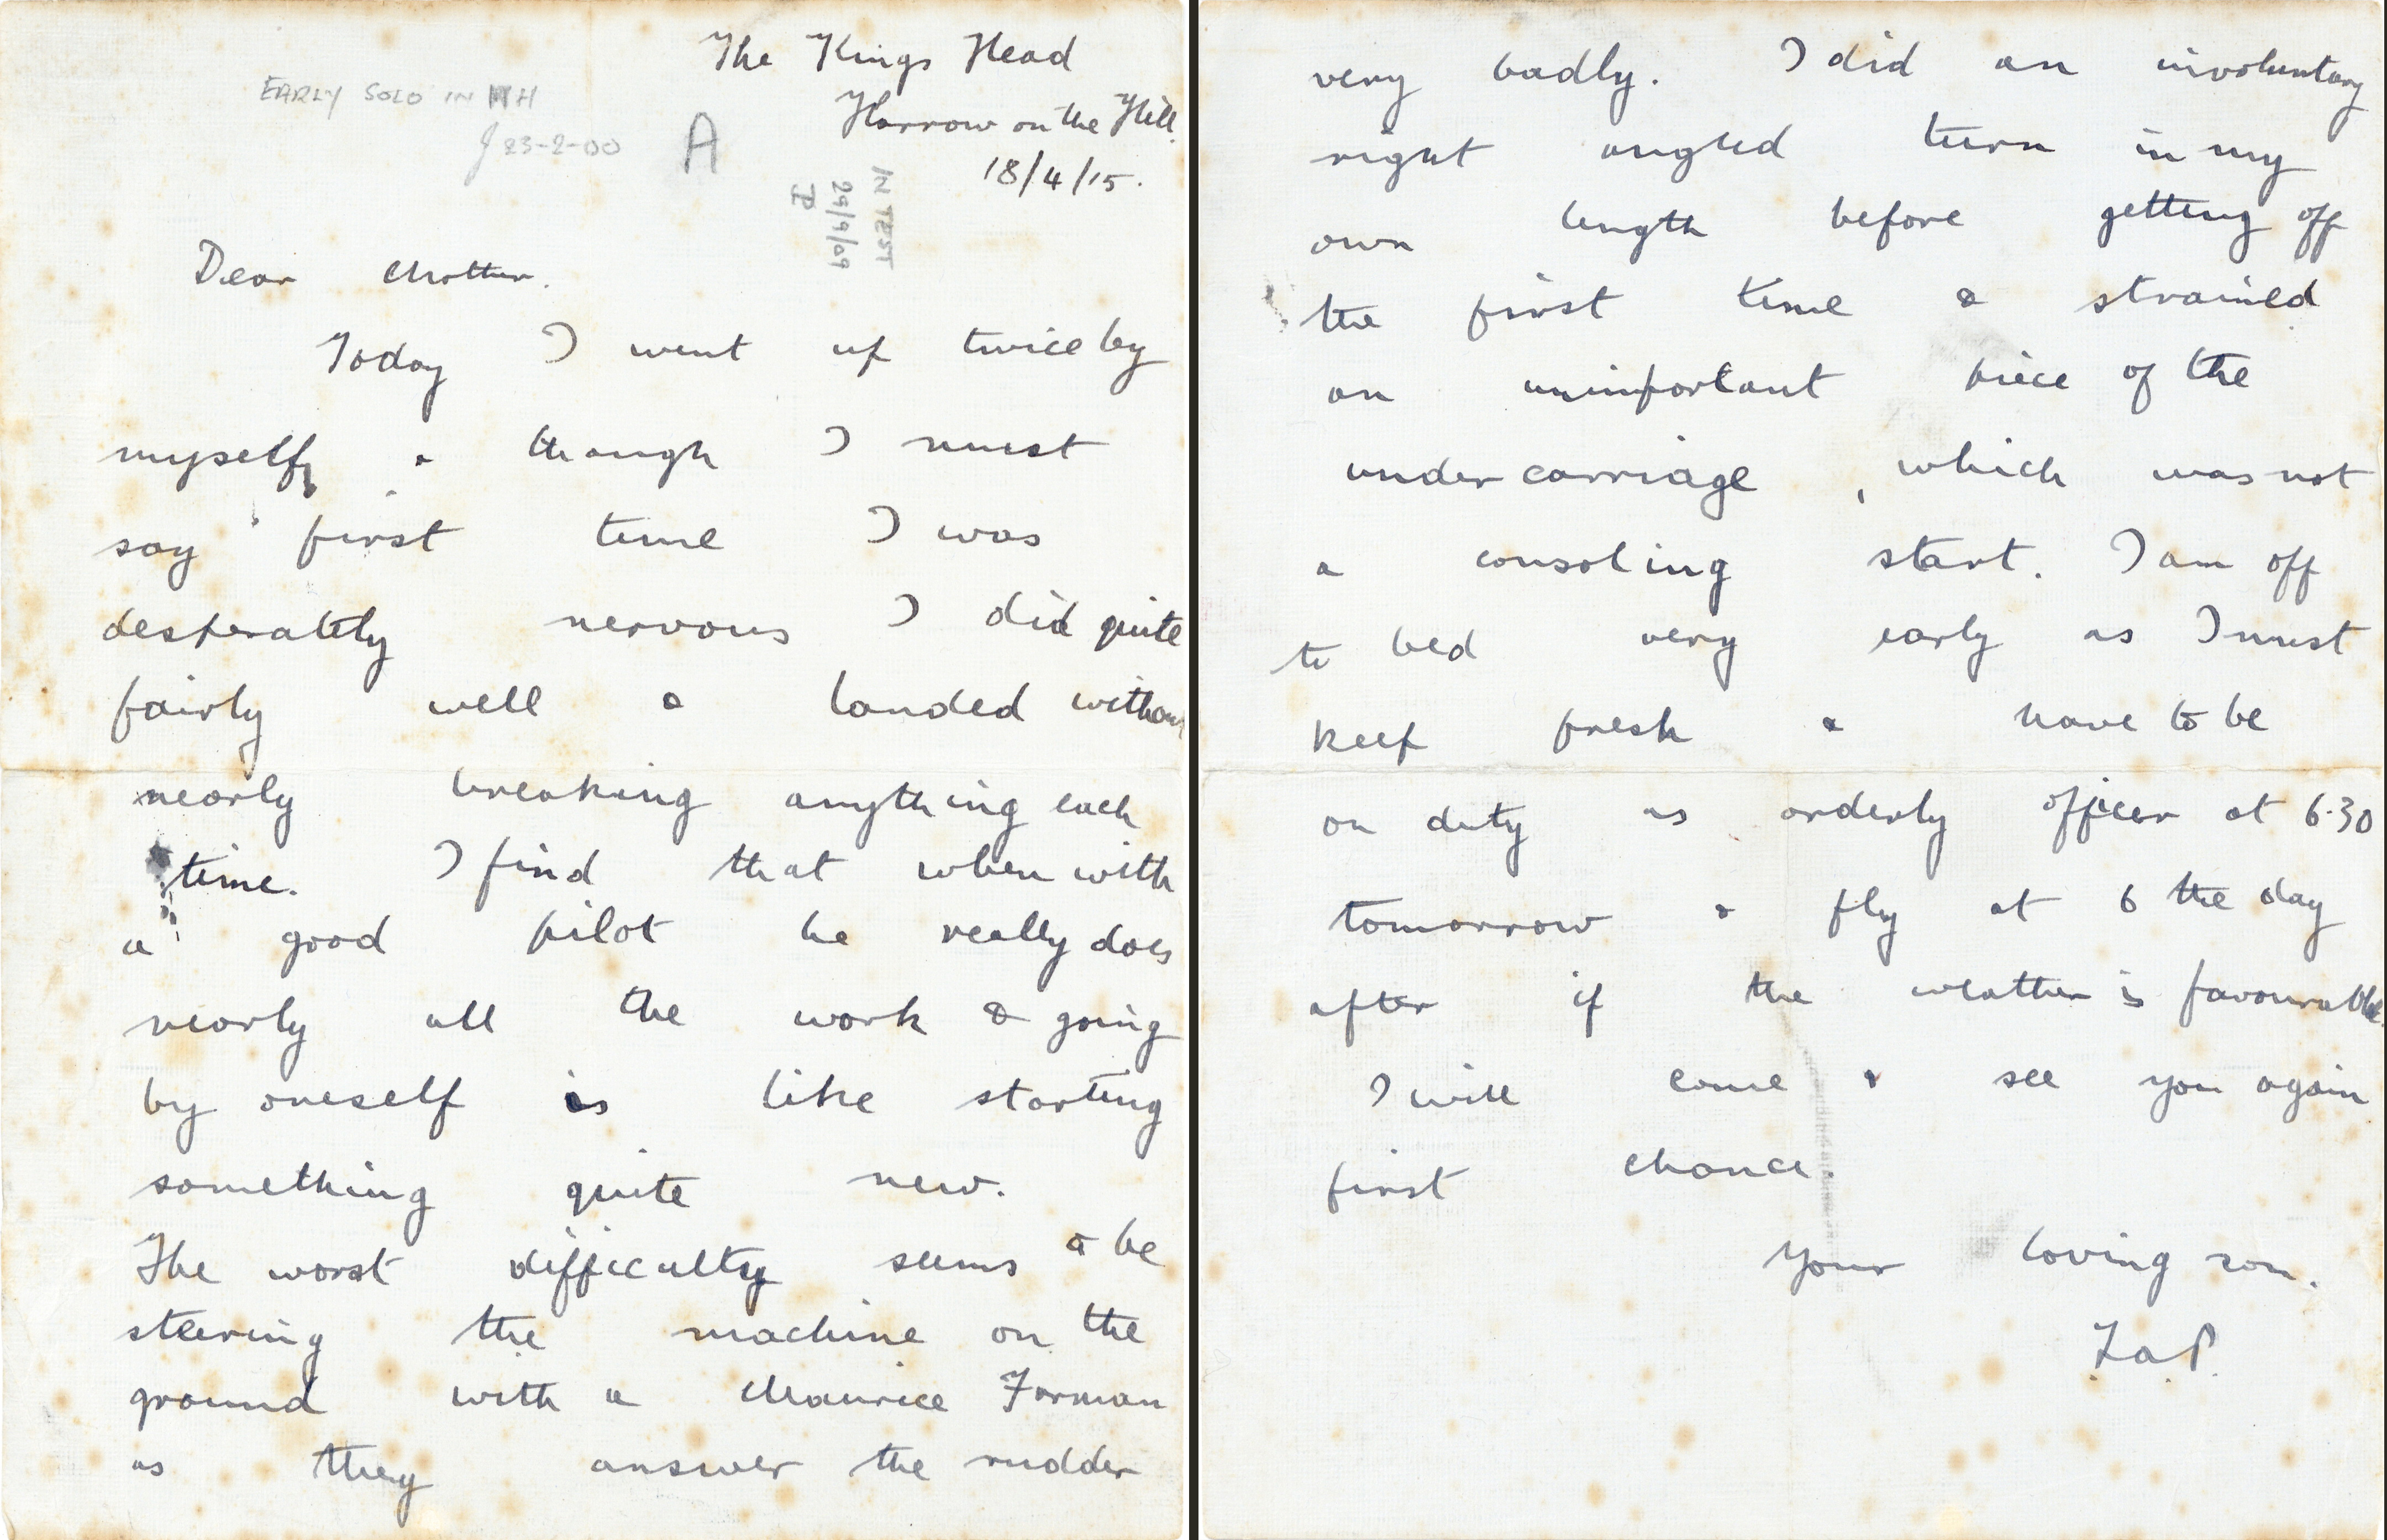 The Kings Head
EARLY SOLO IN H
Harrow on the Hill.
J 23-2-00
A
18/4/15.
IN TEST
29/9/09
Dear Mother.
Today I went up twice by
myself, & though I must
say first time I was
desperately nervous I did quite
fairly well & landed without
nearly breaking anything each
time. I find that when with
a good pilot he really does
nearly all the work & going
by oneself is like starting
something quite new.
The worst difficulty seems to be
steering the machine on the
ground with a Maurice Farman
as they answer the rudder
very badly. I did an involuntary
right angled turn in my
own length before getting off
the first time & strained
an unimportant piece of the
under carriage, which was not
a consoling start. I am off
to bed very early as I must
keep fresh & have to be
on duty as orderly officer at 6.30
tomorrow & fly at 6 the day
after if the weather is favourable.
I will come & see you again
first chance.
Your loving son.